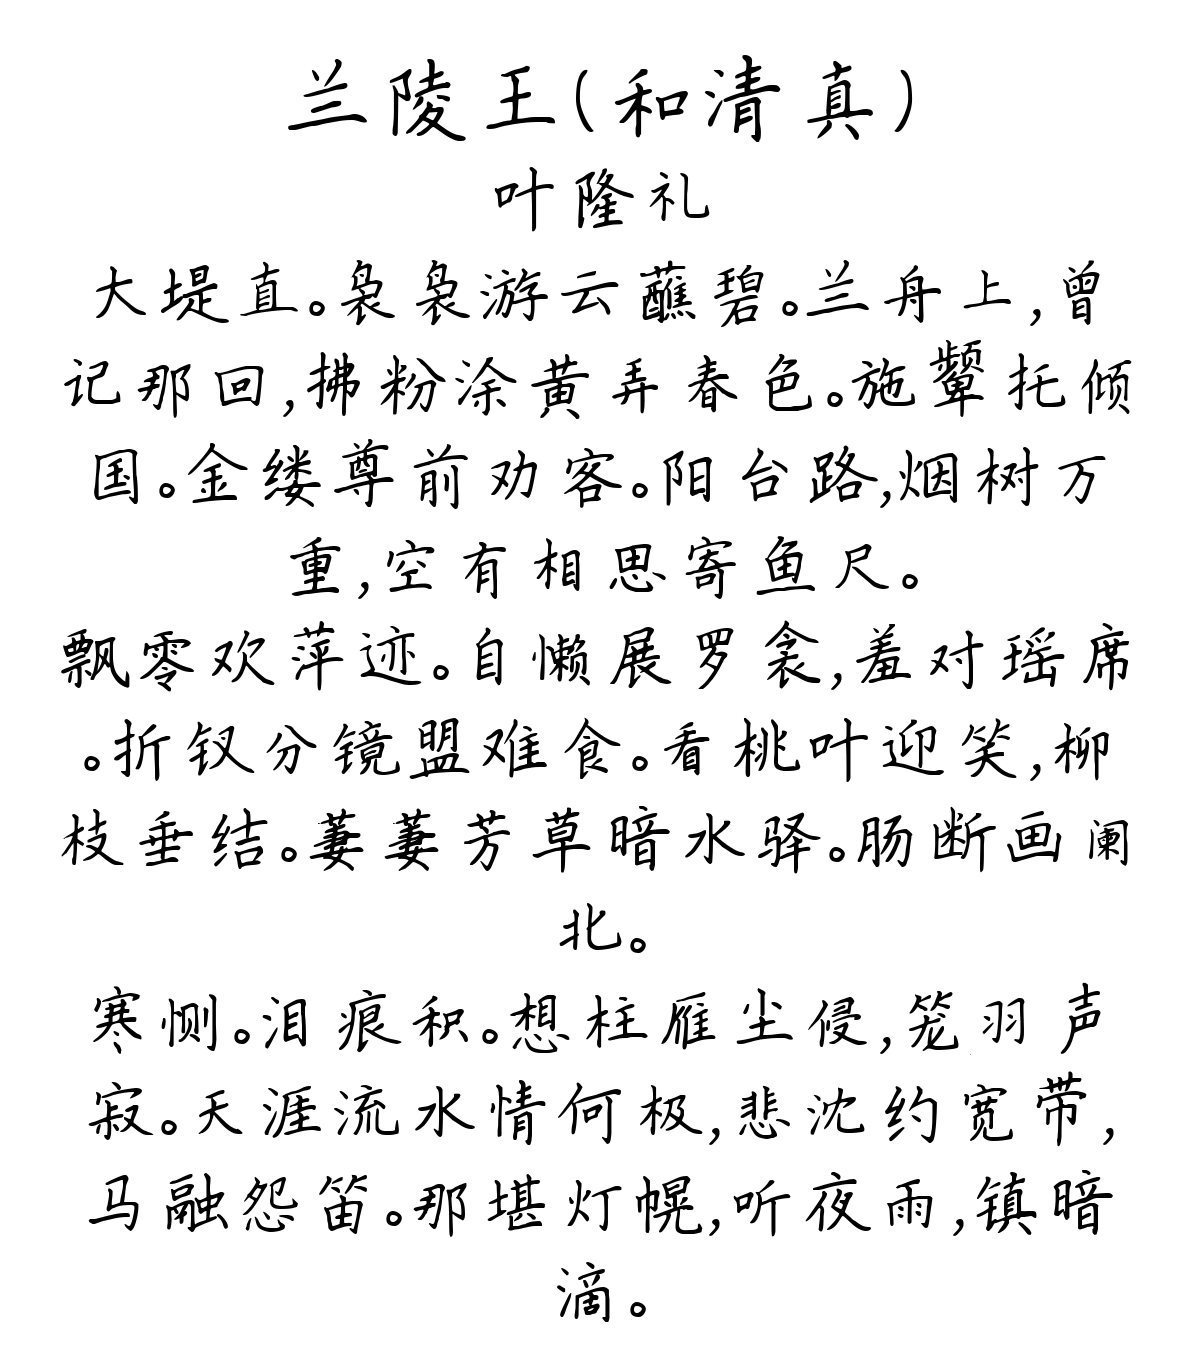 兰陵王(和清真)
叶隆礼
大堤直。袅袅游云蘸碧。兰舟上,曾
记那回,拂粉涂黄弄春色。施颦托倾
国。金缕尊前劝客。阳台路,烟树万
重,空有相思寄鱼尺。
飘零欢萍迹。自懒展罗衾,羞对瑶席
。折钗分镜盟难食。看桃叶迎笑,柳
枝垂结。萋萋芳草暗水驿。肠断画阑
北。
寒恻。泪痕积。想柱雁尘侵,笼羽声
寂。天涯流水情何极,悲沈约宽带,
马融怨笛。那堪灯幌,听夜雨,镇暗
滴。